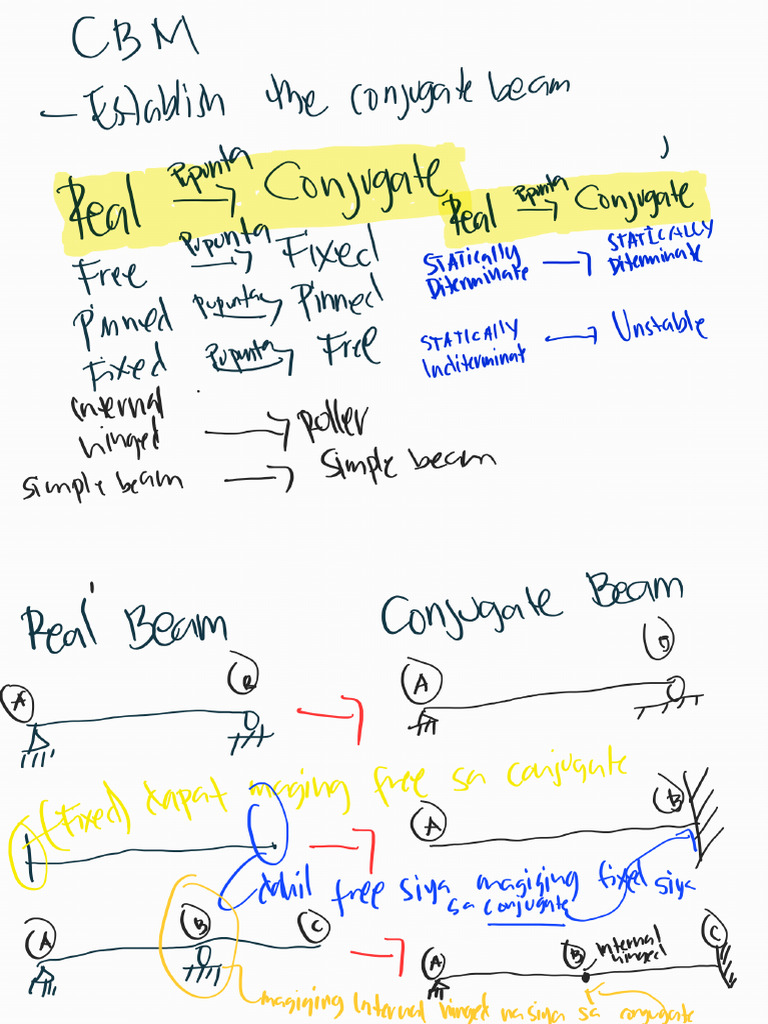 CBM
- Establish the conjugate beam
Real Pupunta → Conjugate
Free Pupunta → Fixed
Pinned Pupuntae → Pinned
Fixed Pupunta → Free
internal hinged → roller
simple beam → simple beam
Real Pupunta → Conjugate
STATically Diterminate → STATICALLY Diterminate
STATICALLY Inditerminat → Unstable
Real Beam
Conjugate Beam
A B → A B
(Fixed) dapat maging free sa conjugate
→ A B
dahil free siya magiging fixed siya
sa conjugate
A B C → A B internal hinged C
magiging internal hinged na siya sa conjugate